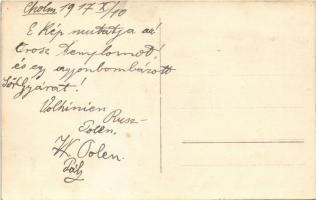 Cholm 1917 X/10
E Kép mutatja az
orosz Templomot!
és egy agyonbombázott
Sörgyárat!
Volhinien
Russ-
Polen.
W Polen.
Pály